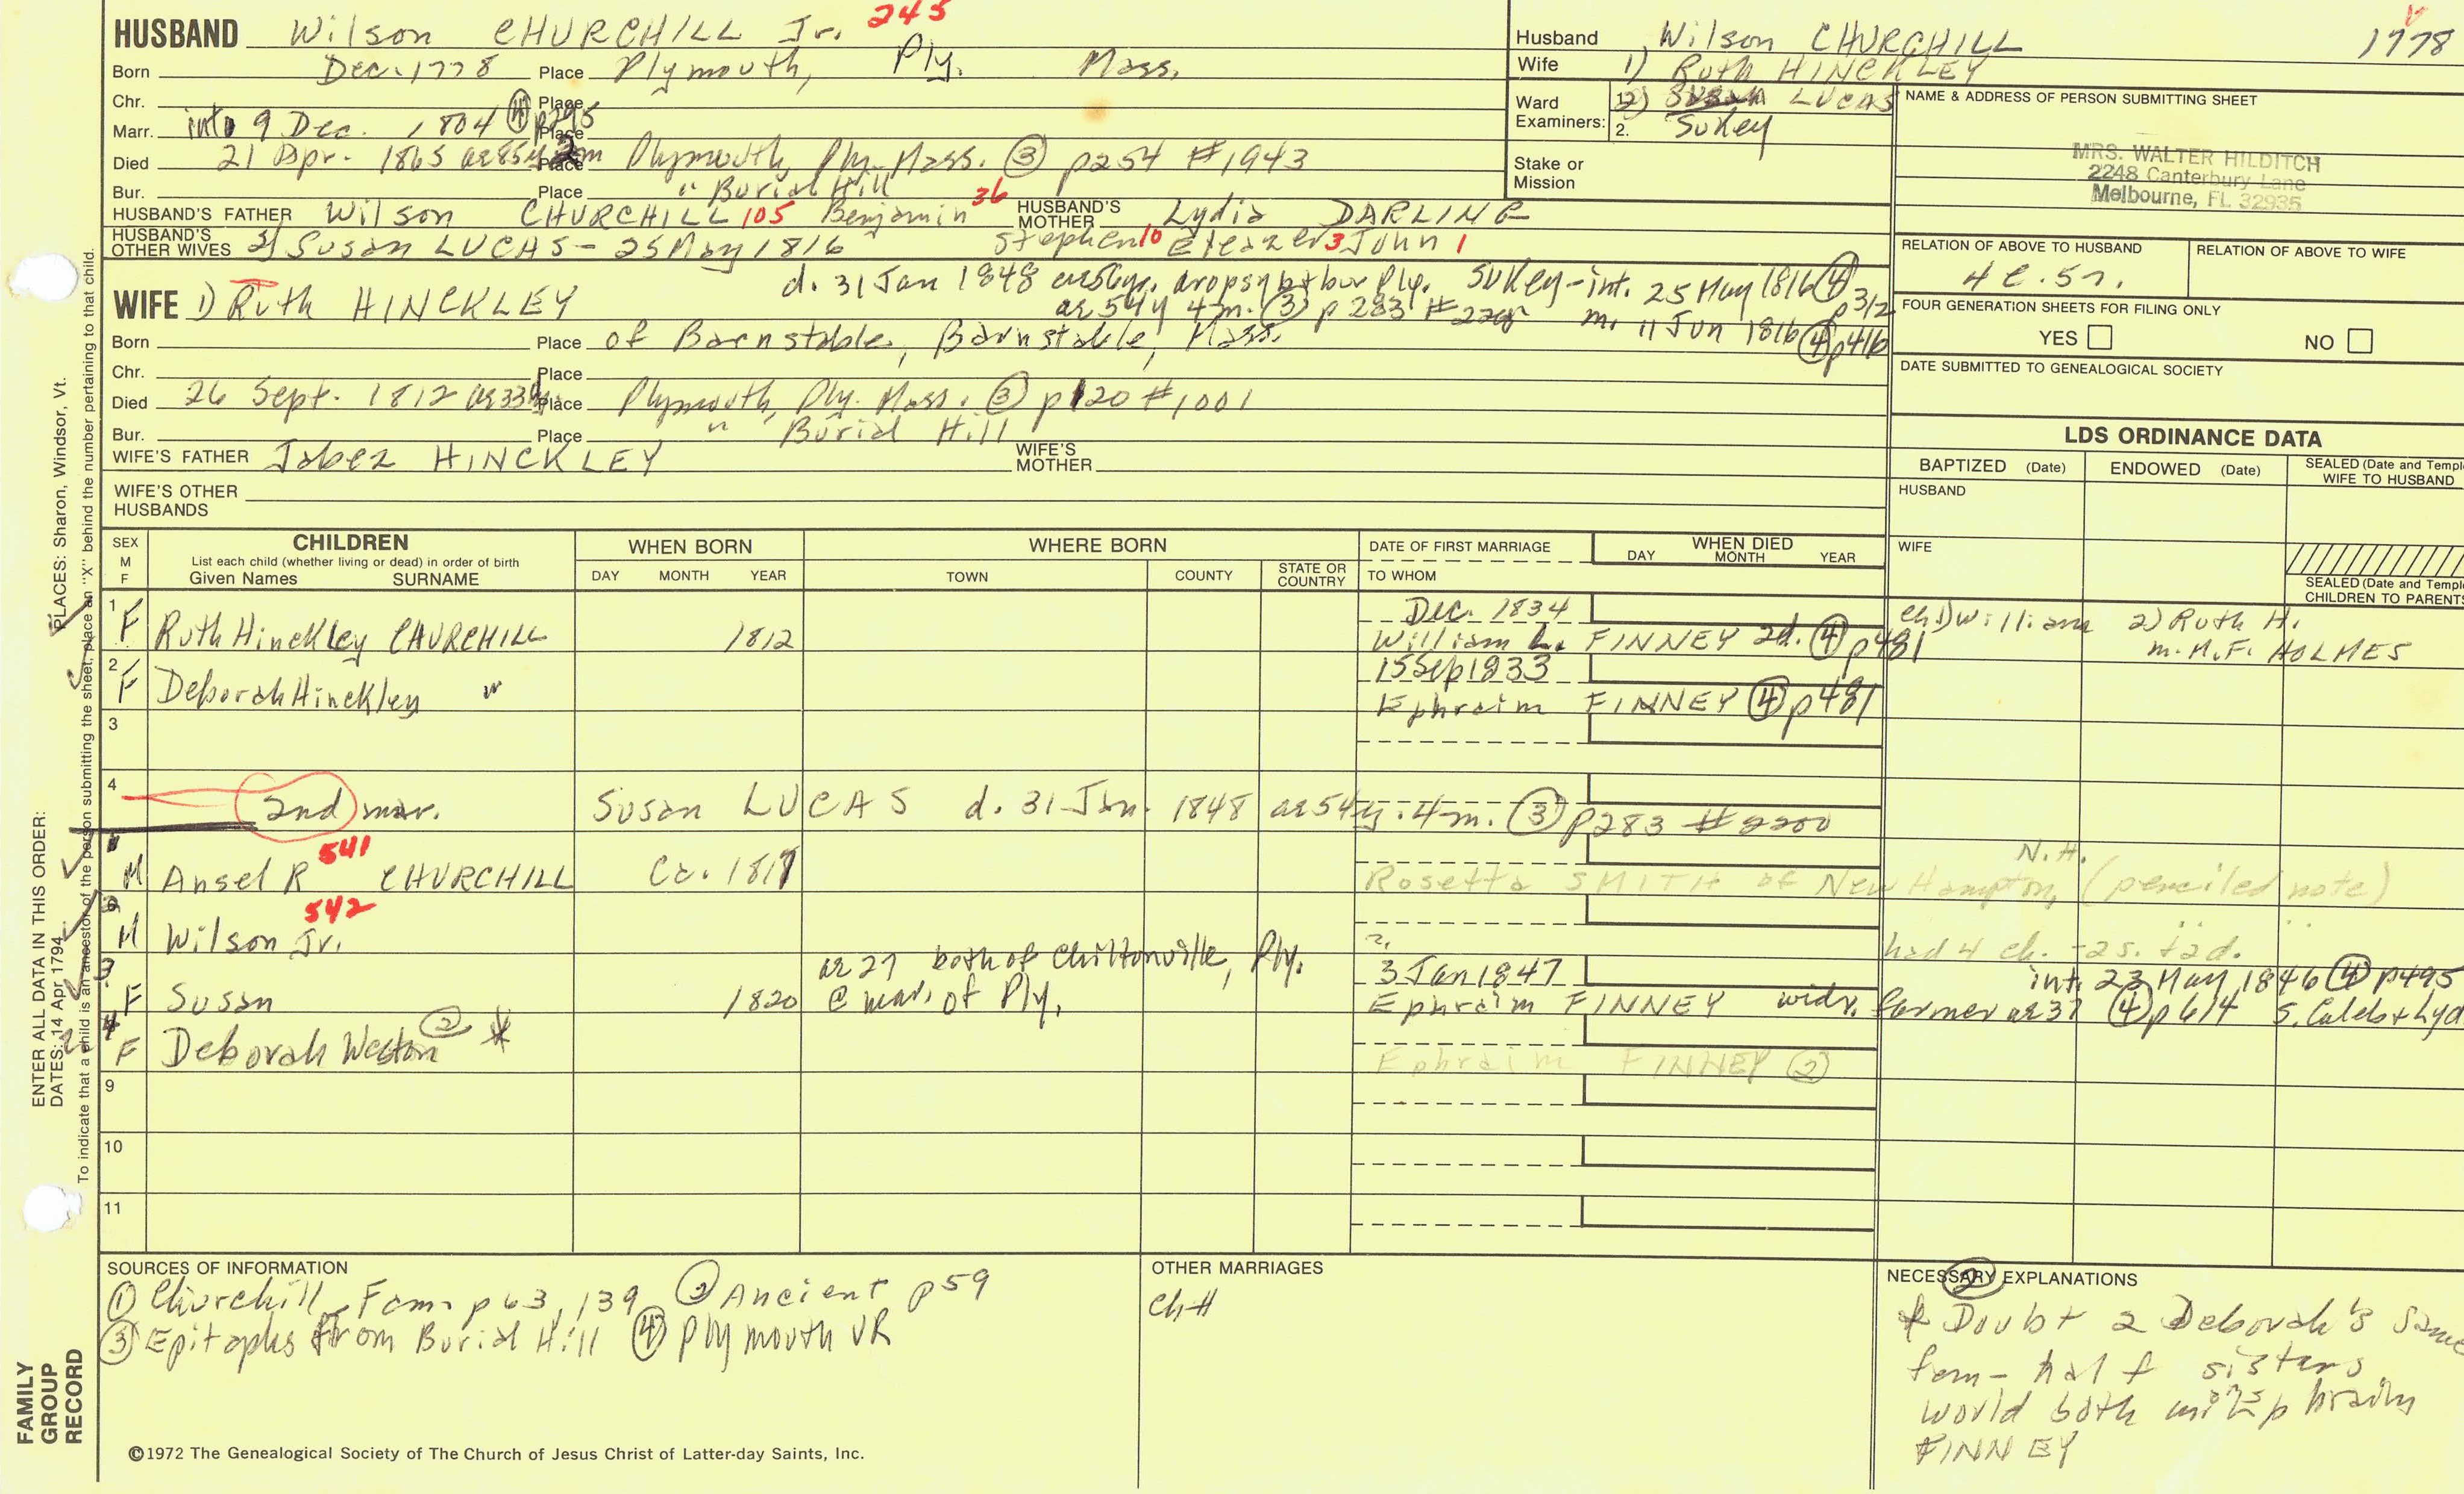 HUSBAND Wilson CHURCHILL Jr. 245
Born Dec. 1778 Place Plymouth, Ply. Mass.
Chr. Place
Marr. int 9 Dec. 1804 ④ p295 Place
Died 21 Apr. 1865 ae 85y 2m Place Plymouth, Ply. Mass. ③ p254 #1943
Bur. Place " Burial Hill
HUSBAND'S FATHER Wilson CHURCHILL 105 Benjamin 36 HUSBAND'S MOTHER Lydia DARLING
HUSBAND'S OTHER WIVES 2) Susan LUCAS - 25 May 1816 Stephen 10 Eleazer 3 John 1
d. 31 Jan 1848 dropsy b + bur Ply. Sukey - int. 25 May 1816 ④ p312
WIFE 1) Ruth HINCKLEY ae 54y 4m. ③ p283 m. 11 Jun 1816 ④ p416
Born Place of Barnstable, Barnstable, Mass.
Chr. Place
Died 26 Sept. 1812 ae 33y Place Plymouth, Ply. Mass. ③ p120 #1001
Bur. Place " Burial Hill
WIFE'S FATHER Jabez HINCKLEY WIFE'S MOTHER
WIFE'S OTHER HUSBANDS
Husband Wilson CHURCHILL 1778
Wife 1) Ruth HINCKLEY
Ward Examiners: 1. 2) Susan LUCAS
2. Sukey
Stake or Mission
NAME & ADDRESS OF PERSON SUBMITTING SHEET
MRS. WALTER HILDITCH
2248 Canterbury Lane
Melbourne, FL 32935
RELATION OF ABOVE TO HUSBAND RELATION OF ABOVE TO WIFE
FOUR GENERATION SHEETS FOR FILING ONLY
YES NO
DATE SUBMITTED TO GENEALOGICAL SOCIETY
LDS ORDINANCE DATA
BAPTIZED (Date) ENDOWED (Date) SEALED (Date and Templ
WIFE TO HUSBAND
HUSBAND
WIFE
SEALED (Date and Templ
CHILDREN TO PARENTS
SEX M F CHILDREN WHEN BORN WHERE BORN DATE OF FIRST MARRIAGE WHEN DIED
List each child (whether living or dead) in order of birth
Given Names SURNAME DAY MONTH YEAR TOWN COUNTY STATE OR COUNTRY TO WHOM DAY MONTH YEAR
1 F Ruth Hinckley CHURCHILL 1812 Dec. 1834 ch 1) William 2) Ruth H.
William L. FINNEY 2d. ④ p481 m. M.F. HOLMES
2 F Deborah Hinckley " 15 Sep 1833
Ephraim FINNEY ④ p481
3
4 2nd mar. Susan LUCAS d. 31 Jan. 1848 ae 54y. 4m. ③ p283 #2200
M Ansel R 541 CHURCHILL Ca. 1817 N.H.
Rosetta SMITH of New Hampton, (penciled note)
2 M Wilson Jr. 542 had 4 ch. - 2s. + 2d.
3 F Susan 1820 ae 27 both of Chiltonville, Ply. 3 Jan 1847 int. 23 May 1846 ④ p495
@ mar. of Ply. Ephraim FINNEY widr. farmer ae 37 ④ p614 S. Caleb + Lyd
4 F Deborah Weston ② *
Ephraim FINNEY ②
9
10
11
SOURCES OF INFORMATION
① Churchill Fam. p 63, 139 ② Ancient p59
③ Epitaphs from Burial Hill ④ Plymouth VR
©1972 The Genealogical Society of The Church of Jesus Christ of Latter-day Saints, Inc.
OTHER MARRIAGES
ch#
NECESSARY EXPLANATIONS
②
* Doubt 2 Deborah's same
fam - half sisters
would both m. Ephraim
FINNEY
PLACES: Sharon, Windsor, Vt.
ENTER ALL DATA IN THIS ORDER:
DATES: 14 Apr 1794
To indicate that a child is an ancestor of the person submitting the sheet, place an "X" behind the number pertaining to that child.
FAMILY
GROUP
RECORD